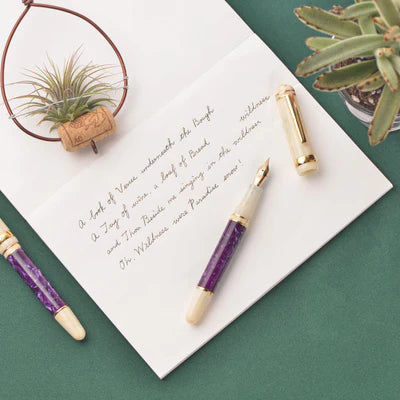 A book of Verse underneath the Bough
A Jug of wine, a loaf of Bread
and Thou Beside me singing in the wilderness
Oh, Wildness were Paradise enow!
wildness